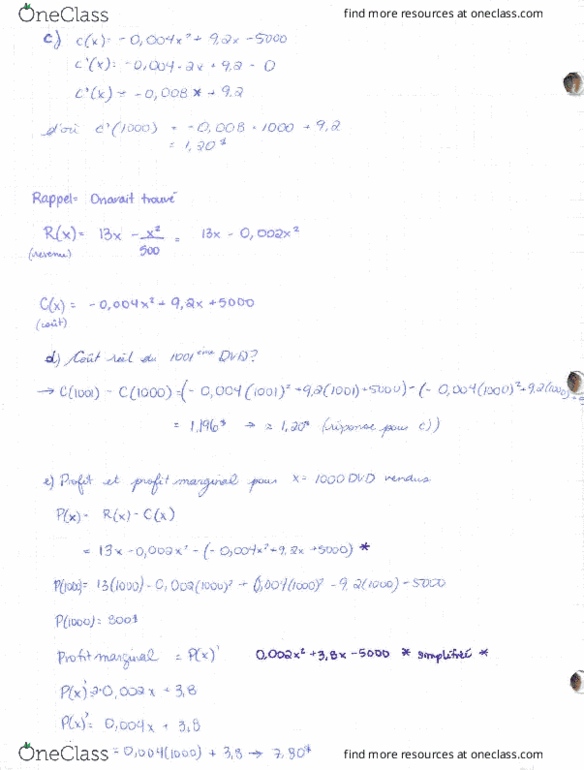 OneClass
find more resources at oneclass.com
c) c(x) = -0,004x² + 9,2x - 5000
c'(x) = -0,004 · 2x + 9,2 - 0
c'(x) = -0,008 * + 9.2
d'où c'(1000) = -0,008 · 1000 + 9,2
= 1,20$
Rappel = On avait trouvé
R(x) = 13x - x²/500 = 13x - 0,002x²
(revenu)
C(x) = -0,004x² + 9,2x + 5000
(coût)
d) Coût réel du 1001ème DVD?
→ C(1001) - C(1000) = (-0,004(1001)² + 9,2(1001) + 5000) - (-0,004(1000)² + 9.2(1000)
= 1,196$ → ≈ 1,20$ (réponse pour c))
e) Profit et profit marginal pour x = 1000 DVD vendus
P(x) = R(x) - C(x)
= 13x - 0,002x² - (-0,004x² + 9,2x + 5000) *
P(1000) = 13(1000) - 0,002(1000)² + 0,004(1000)² - 9,2(1000) - 5000
P(1000) = 800$
Profit marginal = P(x)' 0,002x² + 3,8x - 5000 * simplifiée *
P(x)' = 2·0,002x + 3,8
P(x)' = 0,004x + 3,8
= 0,004(1000) + 3,8 → 7,80$
OneClass
find more resources at oneclass.com